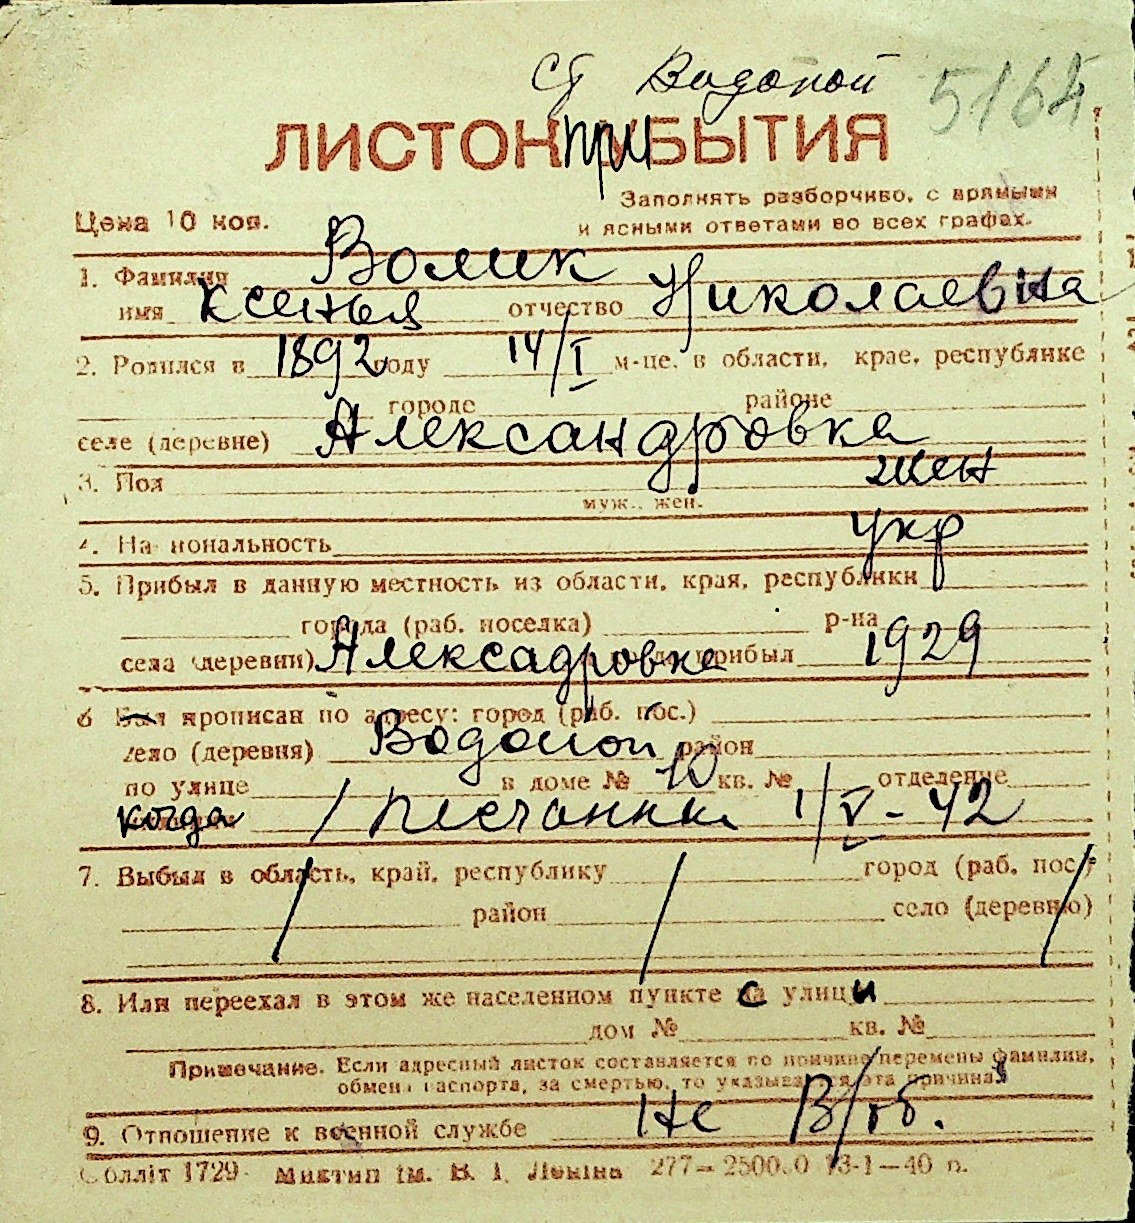 ст Водопой 5164
ЛИСТОК при УБЫТИЯ
Заполнять разборчиво, с прямыми
Цена 10 коп. и ясными ответами во всех графах.
1. Фамилия Волик
имя Ксенья отчество Николаевна
2. Родился в 1892 году 14/I м-це, в области, крае, республике
городе районе
селе (деревне) Александровка
3. Пол жен
муж., жен.
4. Национальность укр
5. Прибыл в данную местность из области, края, республики
города (раб. поселка) р-на
села (деревни) Алексадровка прибыл 1929
6 Был прописан по адресу: город (раб. пос.)
село (деревня) Водопой район
по улице в доме № 10 кв. № отделение
когда / 1/V - 42
7. Выбыл в область, край, республику город (раб. пос.)
район село (деревню)
8. Или переехал в этом же населенном пункте с улицы
дом № кв. №
Примечание. Если адресный листок составляется по причине перемены фамилии,
обмена паспорта, за смертью, то указывается эта причина
9. Отношение к военной службе Не В/об.
Облліт 1729 Миктип ім. В. І. Леніна 277— 2500.0 13-1—40 п.